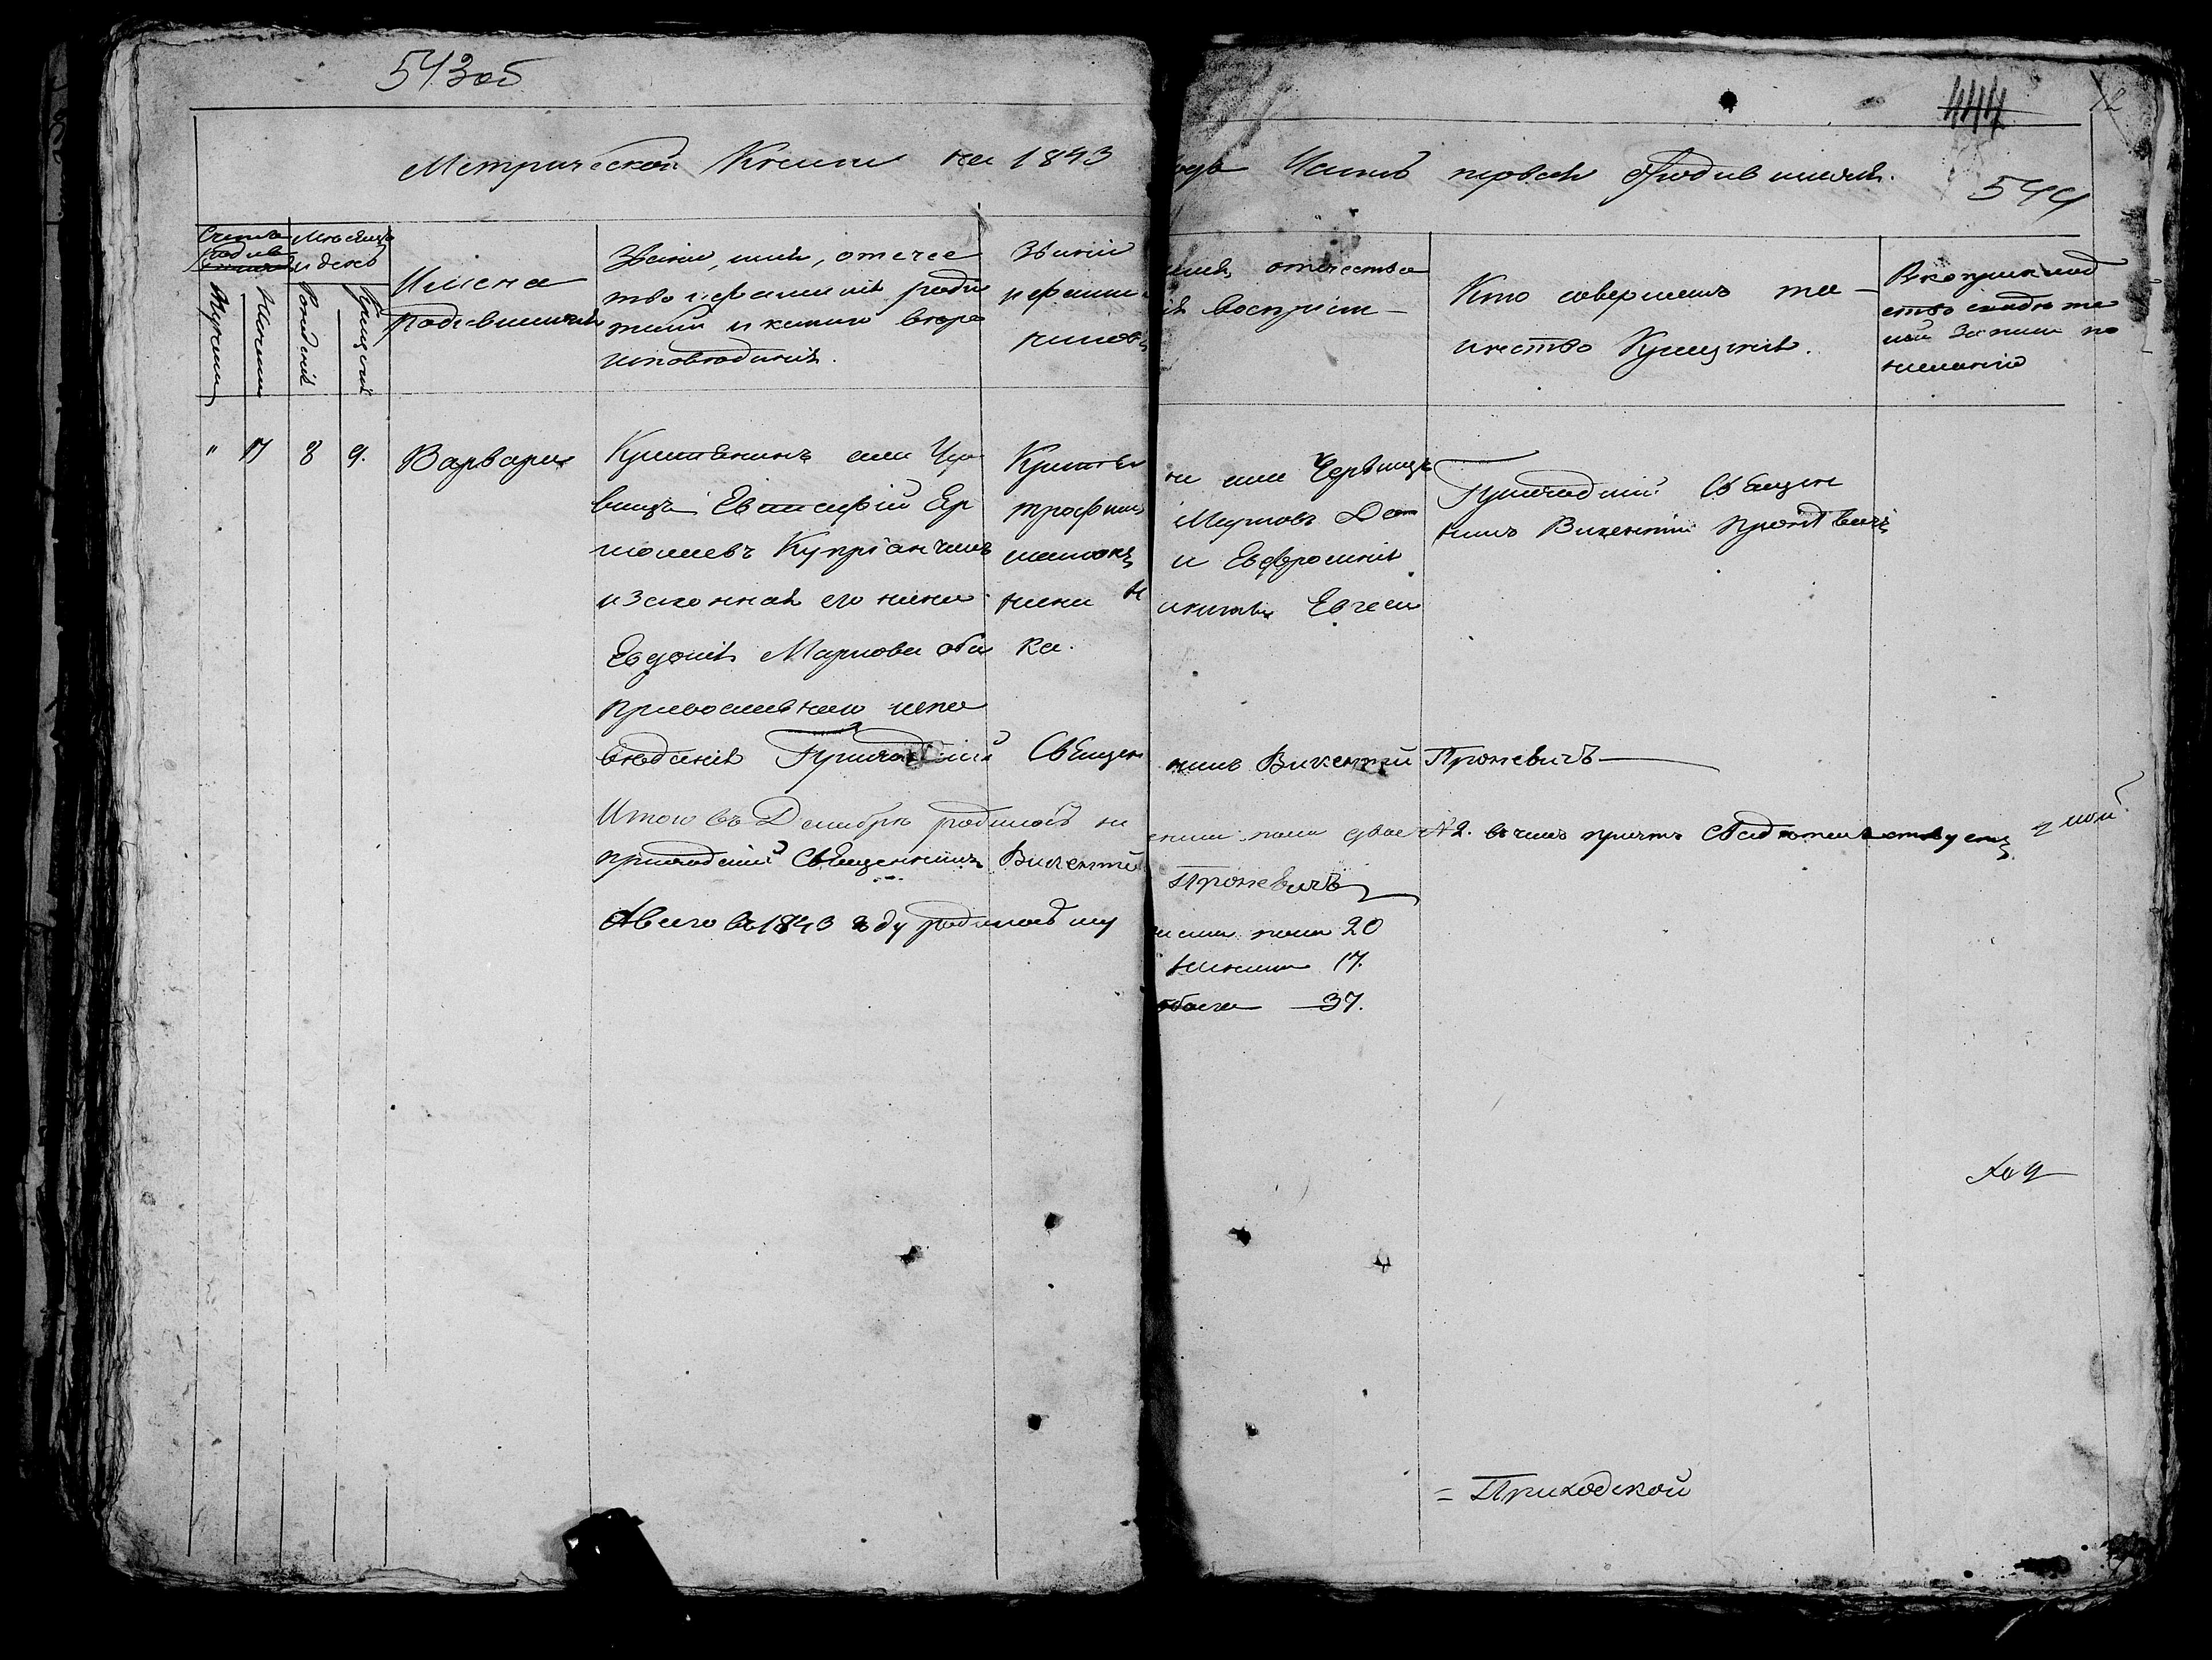 543 об
444
12
544
Метрической Книги на 1843
года Часть первая о родившихся.
Счетъ родившихся
Мужеска
Женска
Месяцъ и день
Рожденія
Крещенія
Имена
Родившихся
Званіе, имя, отече
ство и фамилія роди
телей и какого веро
исповеданія.
Званіе имя, отечество
и фамилія воспріем
никовъ
Кто совершалъ та
инство Крещенія.
Рукоприклад
ство свидете
лей записи по
желанію
" 17 8 9. Варвара
Крестьянинъ села Чер
вищъ Евстафій Ер
молаевъ Купріянчикъ
и законная его жена
Евдокія Маркова оба
православнаго испо
веданія
Крестьянинъ села Червищъ
Трофимъ Марковъ
и Евфросинія
жена Никиты Евчеси
ка.
Приходскій Священ
никъ Викентій Проневичъ
Приходскій Священникъ Викентій Проневичъ
Итого въ Декабре родилось женска пола двое № 2. въ чемъ причтъ свидетельствуетъ
приходскій Священникъ Викентій Проневичъ
А всего въ 1843 году родилось мужска пола 20
женска 17.
обоего 37.
= Приходской